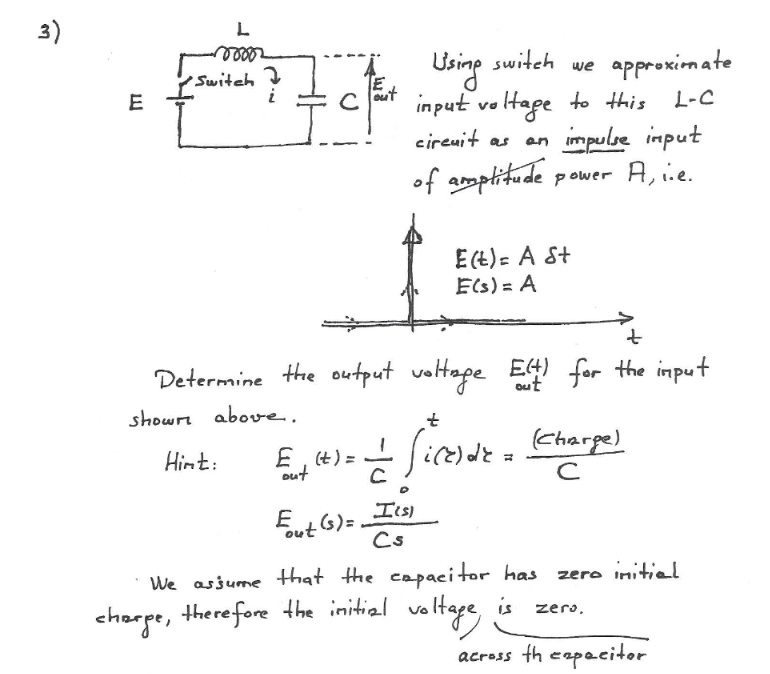 3)
L
Switch
i
E
C
E out
Using switch we approximate
input voltage to this L-C
circuit as an impulse input
of amplitude power A, i.e.
E(t) = A δt
E(s) = A
t
Determine the output voltage E(t) out for the input
shown above.
Hint: E out (t) = 1/C ∫ 0 t i(τ) dτ = (Charge)/C
E out (s) = I(s)/Cs
We assume that the capacitor has zero initial
charge, therefore the initial voltage, is zero.
across th capacitor